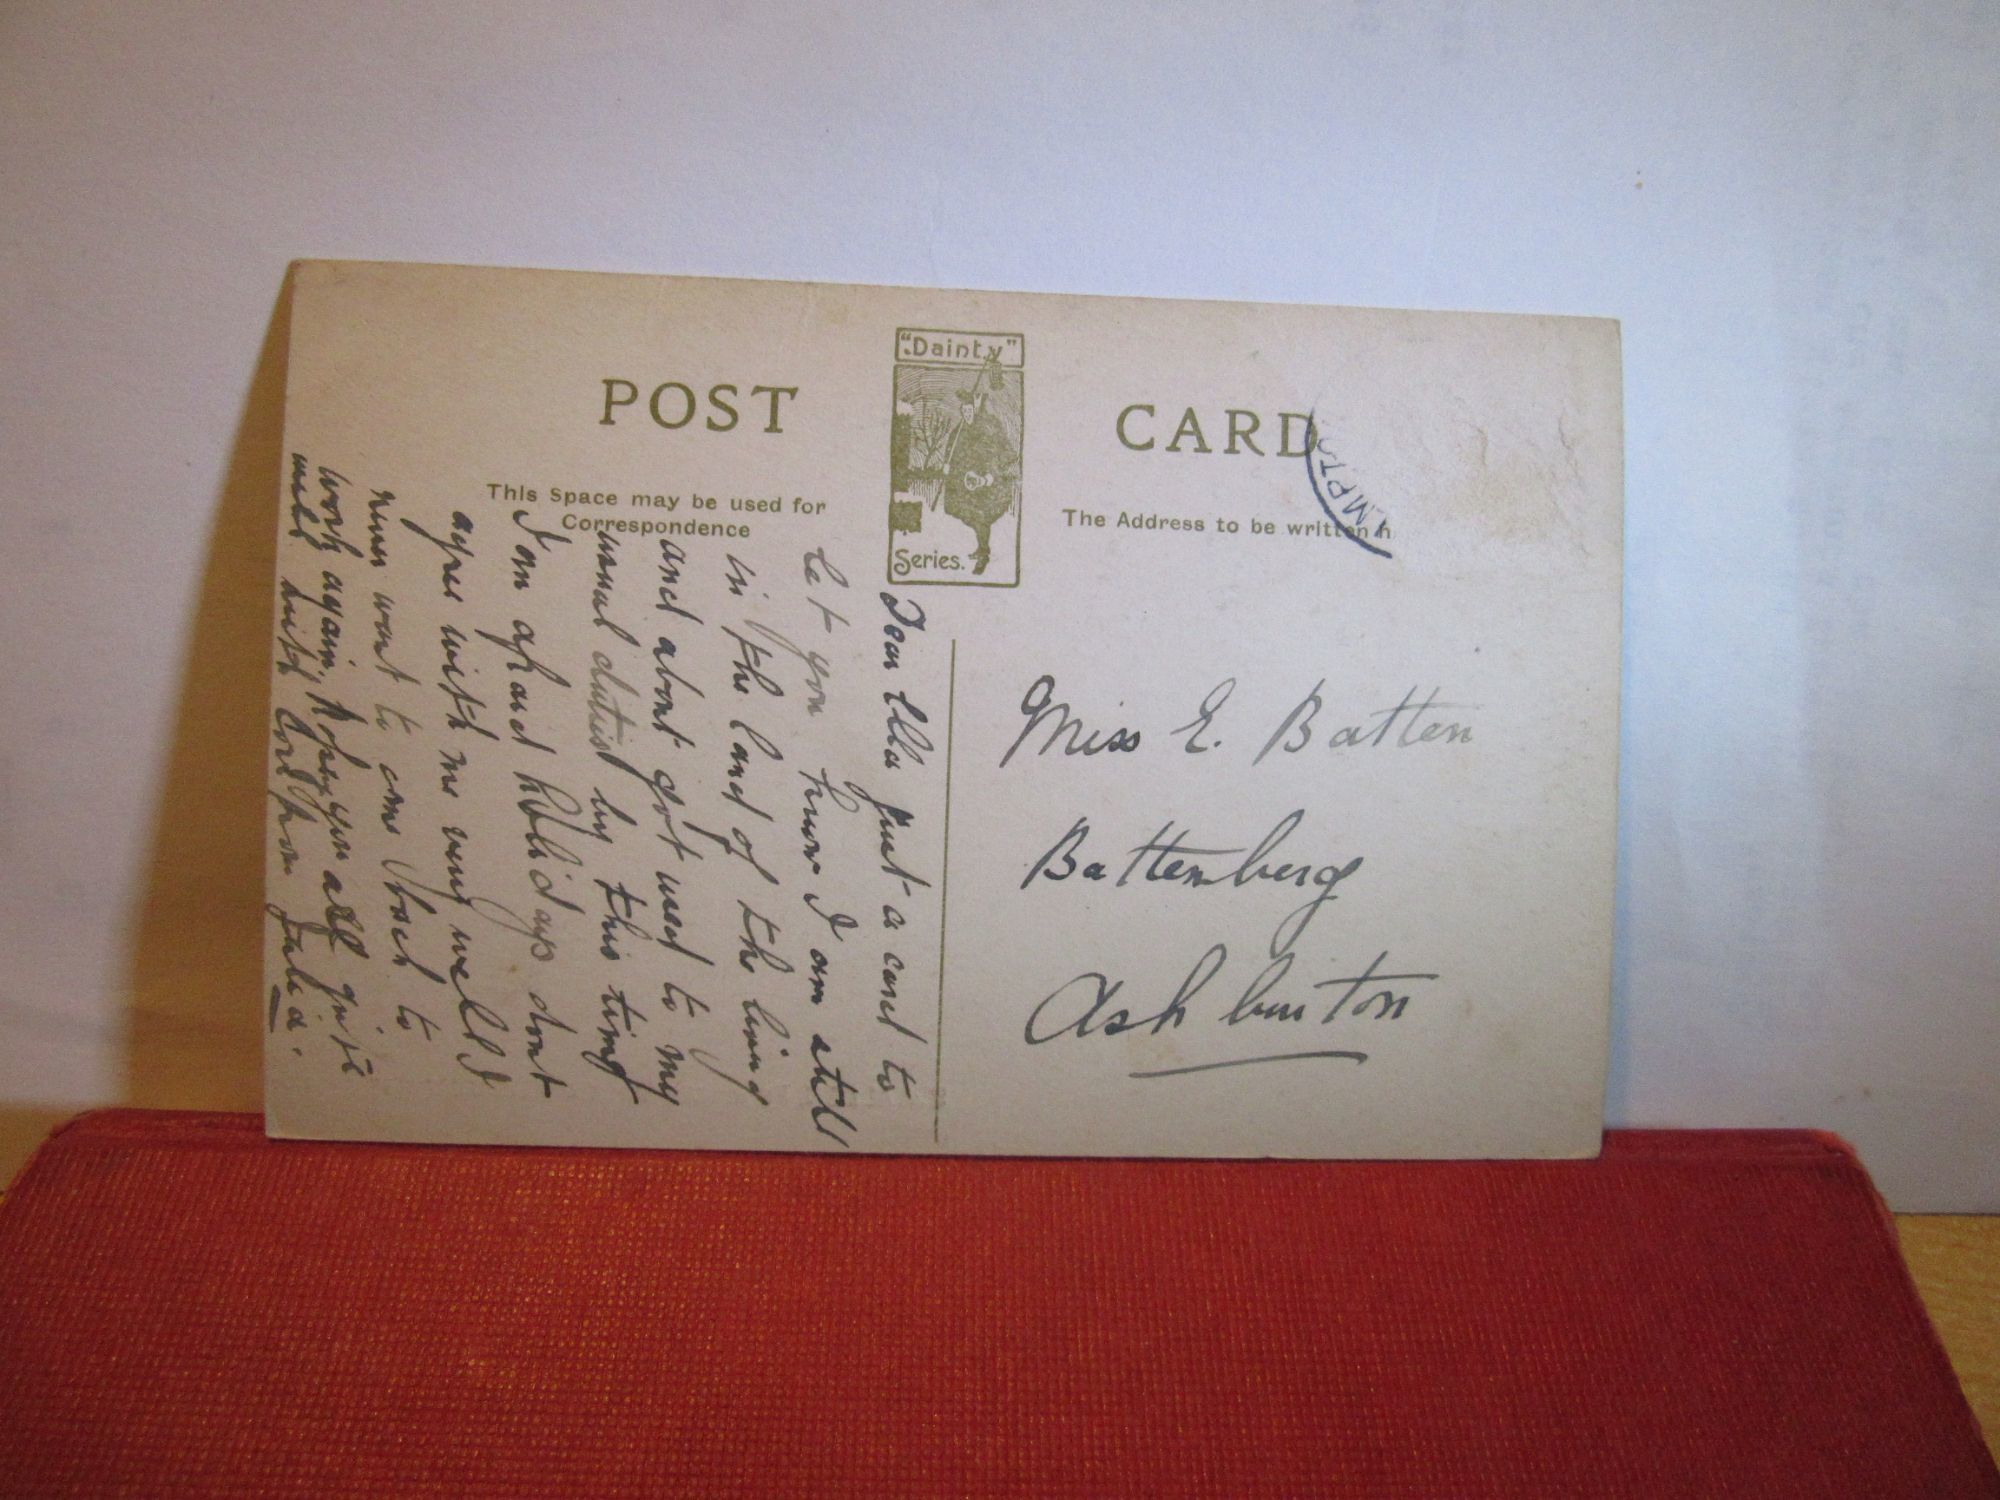 "Dainty"
Series.
POST CARD
This Space may be used for
Correspondence
The Address to be written h
MPTO
Dear Ella Just a card to
let you know I am still
in the land of the living
and about got used to my
usual duties by this time
I am afraid holidays dont
agree with me very well I
never want to come back to
work again, hope you all quite
well with love from Julia.
Miss E. Batten
Battenberg
Ashburton